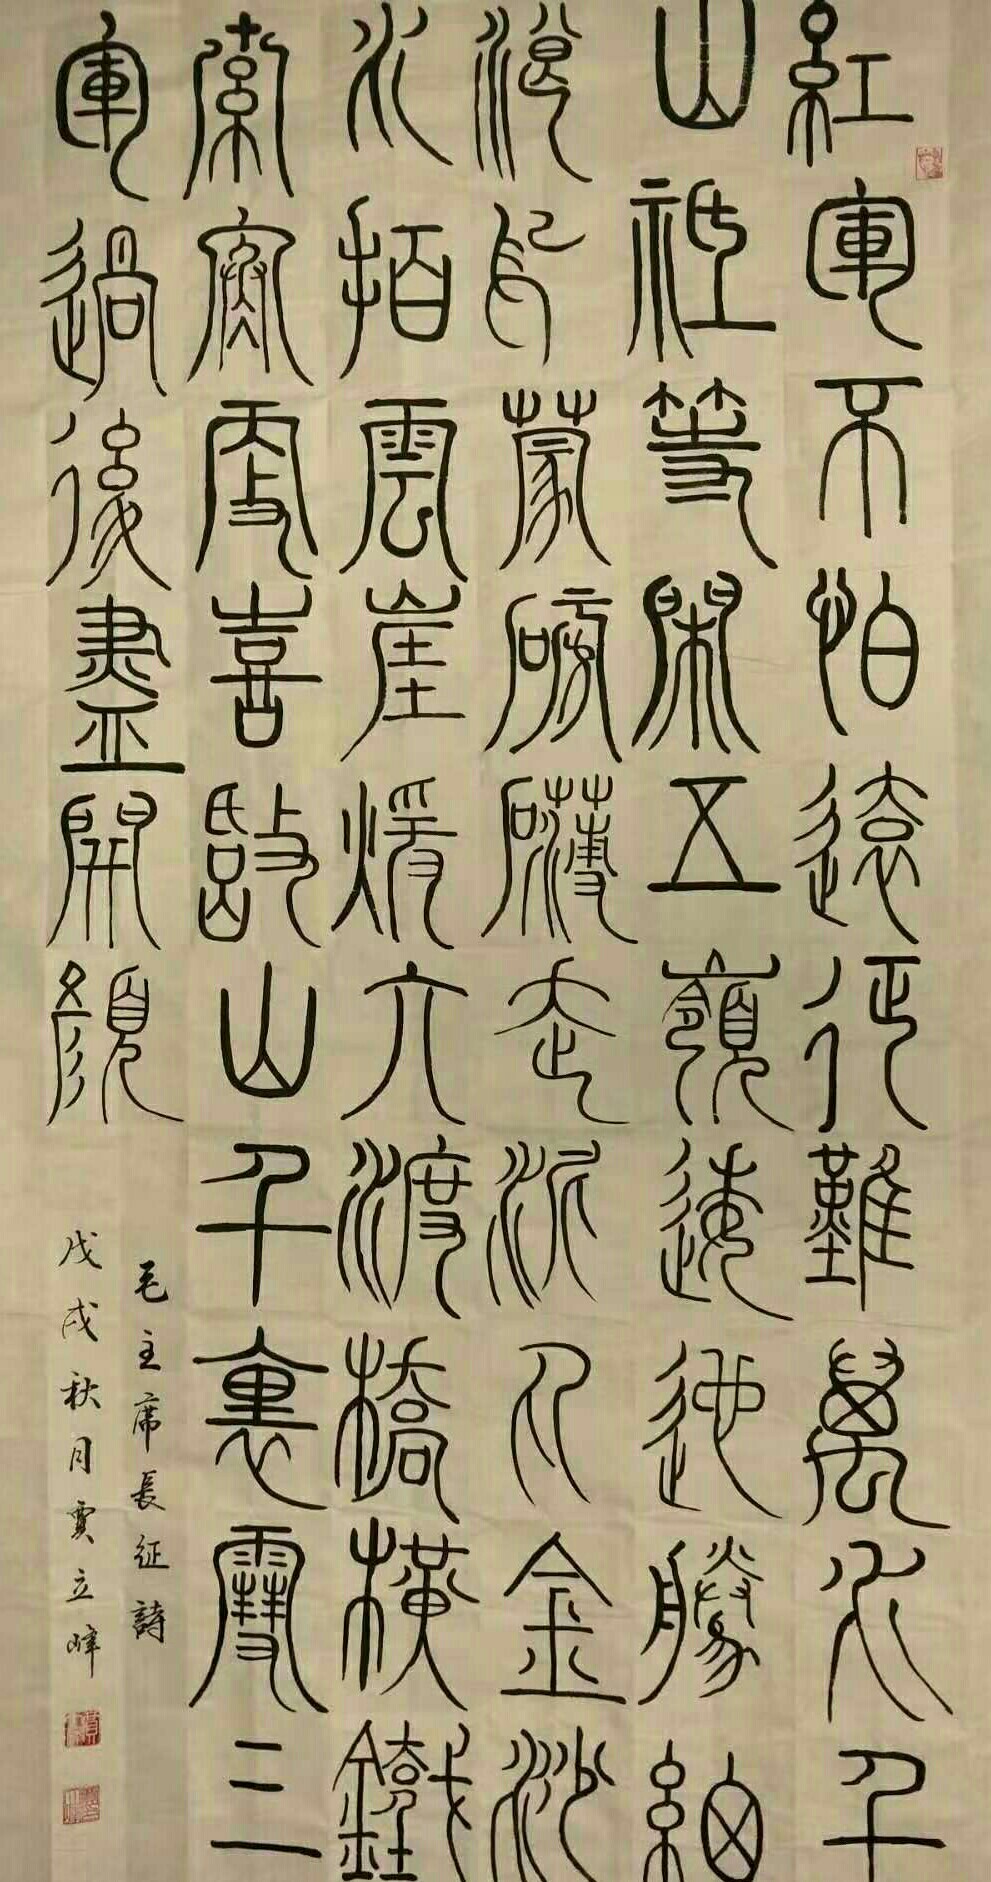 紅軍不怕遠征難萬水千
山祇等閑五嶺逶迤騰細
浪烏蒙磅礴走泥丸金沙
水拍雲崖煖大渡橋橫鐵
索寒更喜岷山千裏雪三
軍過後盡開顏
毛主席長征詩
戊戌秋月賈立峰